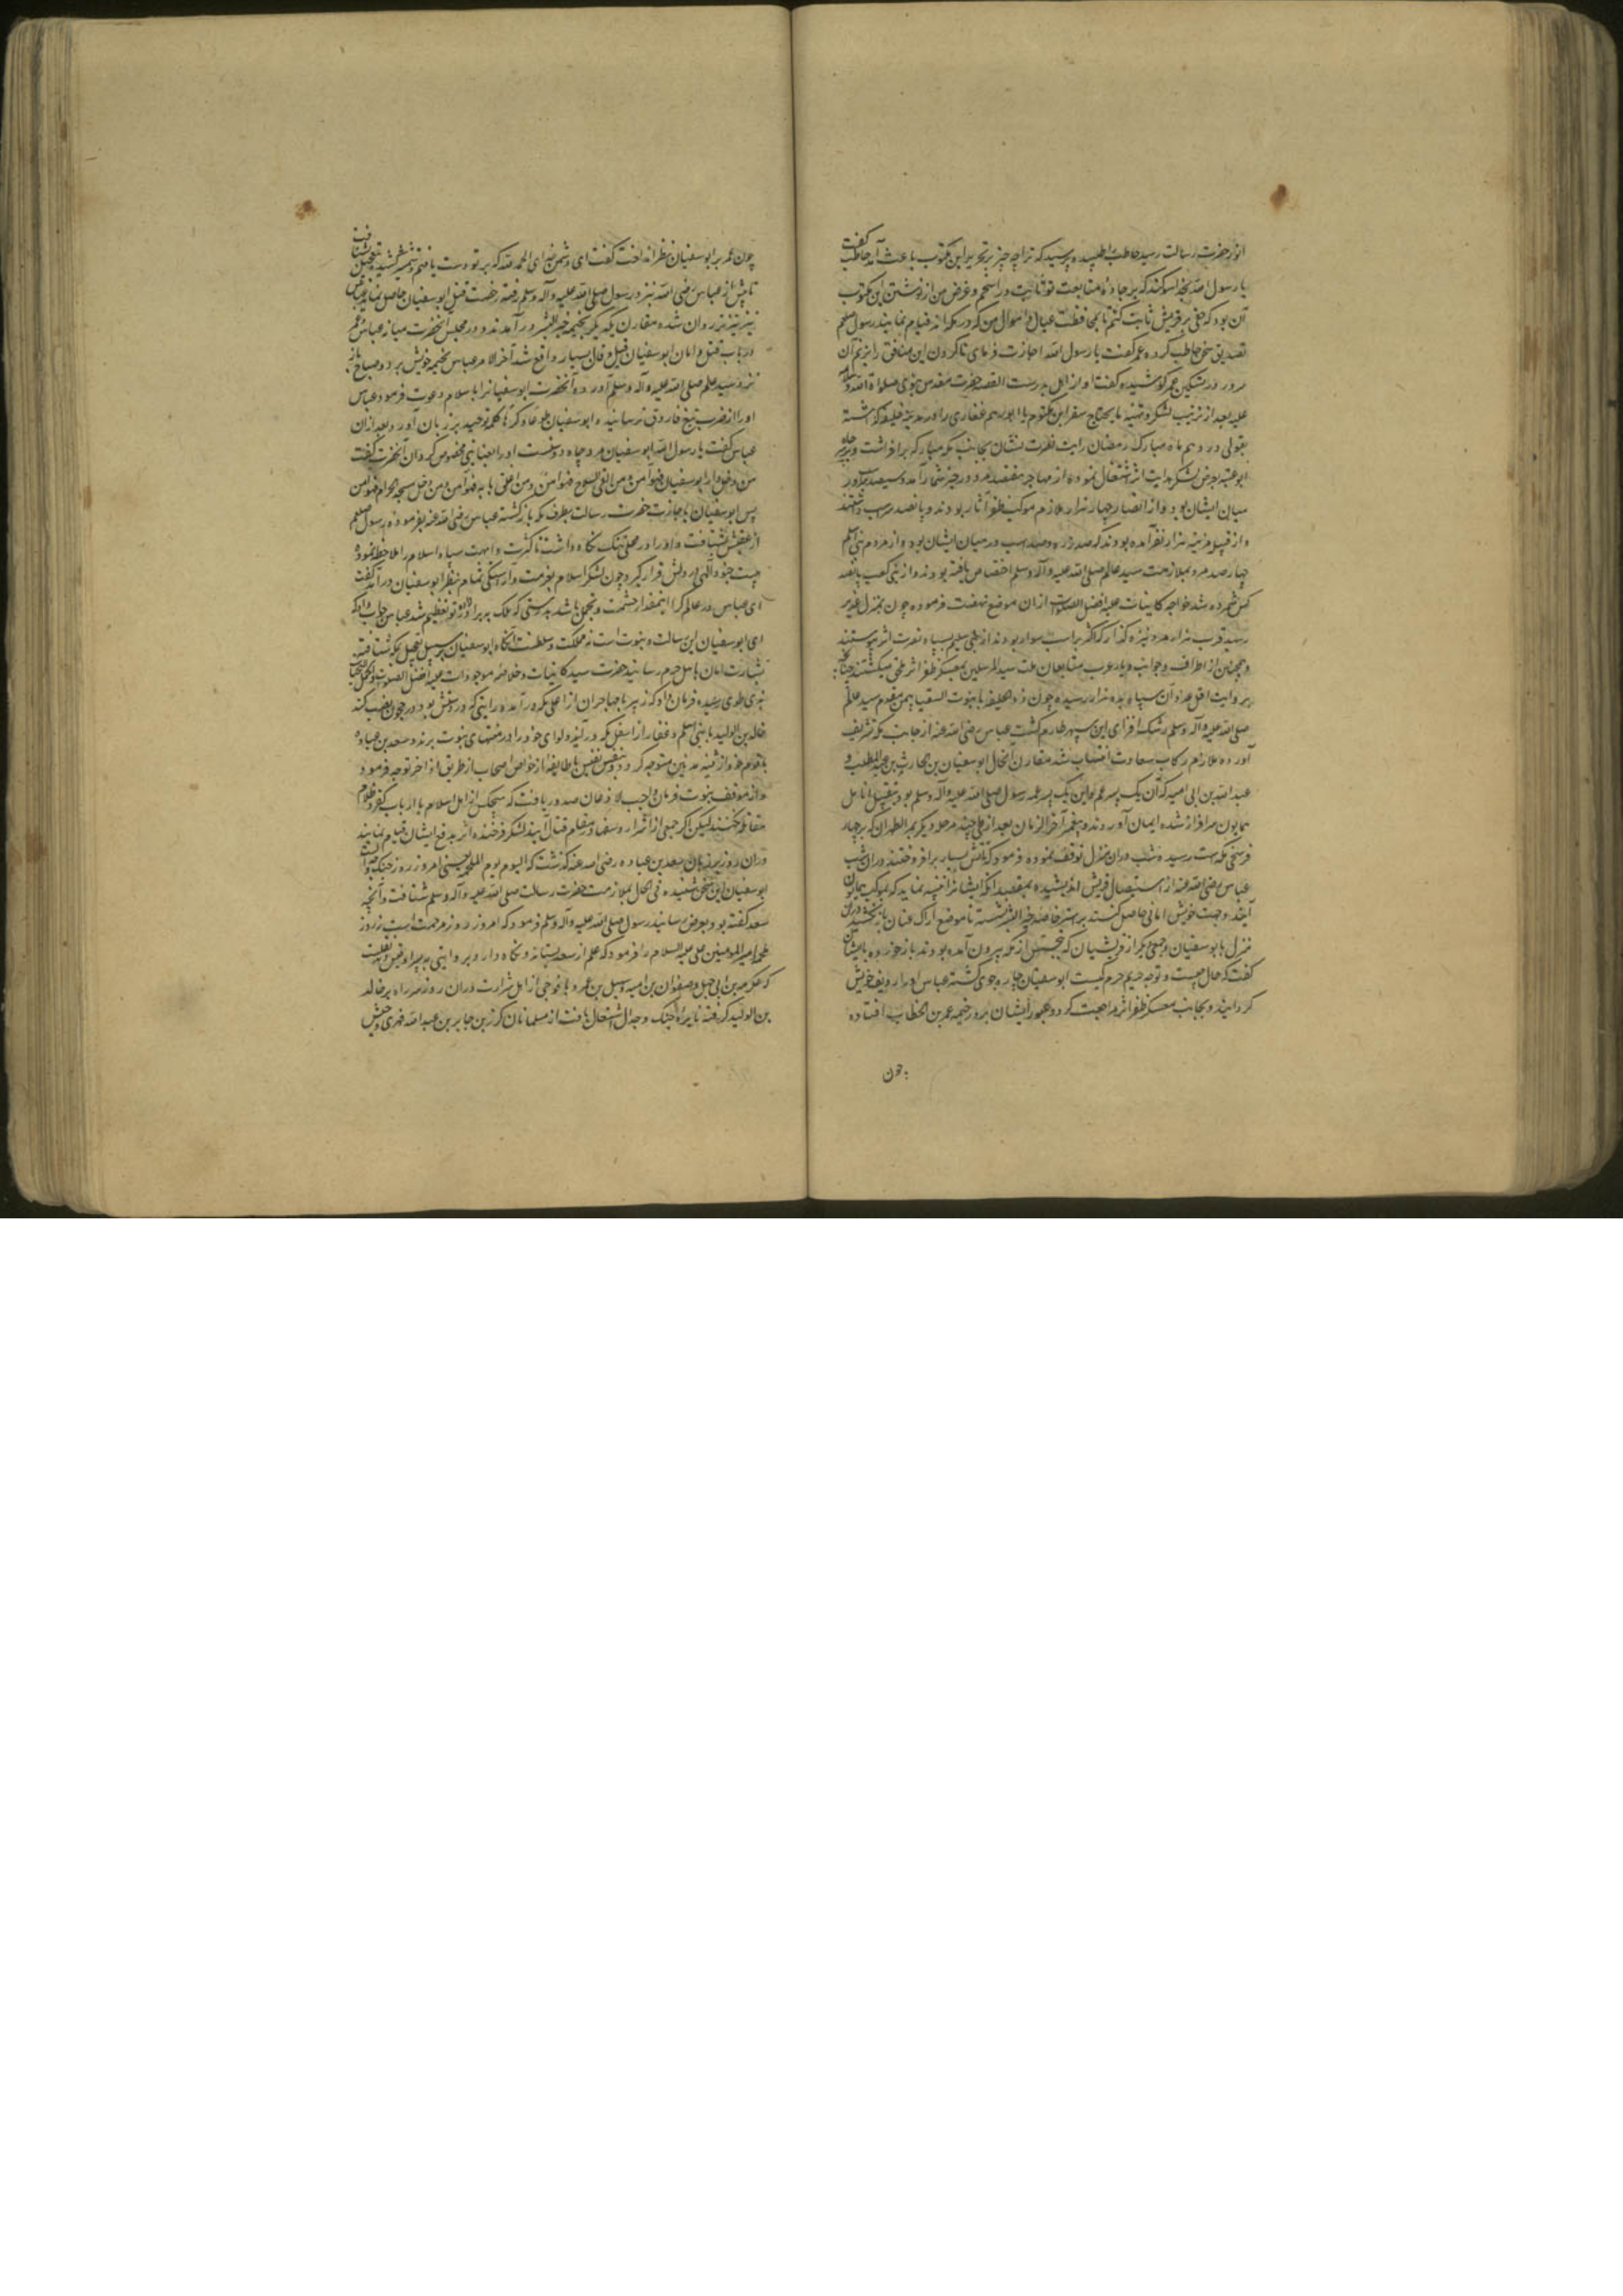 انور حضرت رسالت رسید حاطب را طلبیده پرسید که ترا چه چیز بر تحریر این مکتوب باعث آمد حاطب گفت
یا رسول الله بخدا سوکند که بر جاده متابعت تو ثابت و راسخم و غرض من از نوشتن این مکتوب
آن بود که حقی بر قریش ثابت کنم تا بمحافظت عیال و اموال من که در مکه اند قیام نمایند رسول صلعم
تصدیق سخن حاطب کرده عمر گفت یا رسول الله اجازت فرمای تا کردن این منافق را بزنم آن
سرور در تسکین عمر کوشیده گفت او از اهل بدرست القصه حضرت مقدس نبوی صلواة الله و سلامه
علیه بعد از ترتیب لشکر و تهیه مایحتاج سفر ابن مکتوم یا ابورهم غفاری را در مدینه خلیفه کذاشته
بقولی در دهم ماه مبارک رمضان رایت نصرت نشان بجانب مکه مبارکه برافراشت و بر سر چاه
ابو عنبه بعرض لشکر هدایت اثر اشتغال نموده از مهاجر هفتصد مرد در حیز شمار آمد و سیصد اسب در
میان ایشان بود و از انصار چهار هزار ملازم موکب ظفر آثار بودند و پانصد اسب داشتند
و از قبیله مزینه هزار نفر آمده بودند که صد زره و صد اسب در میان ایشان بود و از مردم بنی اسلم
چهارصد مرد بملازمت سید عالم صلی الله علیه و آله وسلم اختصاص یافته بودند و از بنی کعب پانصد
کس شمرده شد خواجه کاینات علیه افضل الصلوات ازان موضع نهضت فرموده چون بمنزل قدید
رسید قرب هزار مرد نیزه کذار که اکثر بر اسب سوار بودند از بنی سلیم بسپاه نصرت اثر پیوستند
و همچنین از اطراف و جوانب دیار عرب متابعان ملت سید المرسلین بمعسکر ظفر اثر ملحق میکشتند چنانچه
بروایت اقل عدد آن سپاه بده هزار رسیده چون ذو الحلیفه یا بنوت السقیا بیمن مقدم سید عالم
صلی الله علیه و آله وسلم رشک افزای این سپهر طارم کشت عباس رضی الله عنه از جانب مکه تشریف
آورده ملازم رکاب سعادت انتساب شد مقارن الحال ابو سفیان بن الحارث بن عبد المطلب و
عبد الله بن ابی امیه که آن یک پسر عم و این یک پسر عمه رسول صلی الله علیه و آله وسلم بود بتقبیل انامل
همایون سرافراز شده ایمان آوردند و پیغمبر آخر الزمان بعد از طی چند مرحله دیگر بمر الظهران که بر چهار
فرسخی مکه است رسیده شب دران منزل توقف نموده فرمود که آتش بسیار برافروختند دران شب
عباس رضی الله عنه از استیصال قریش اندیشیده بمقصد آنکه ایشانرا تنبیه نماید که بموکب همایون
آیند و جهت خویش امانی حاصل کنند بر استر خاصه خیر البشر نشسته تا موضع اراک عنان باز نکشید و دران
منزل با بو سفیان و جمعی دیگر از قریشیان که بتجسس از مکه بیرون آمده بودند باز خورده با ایشان
گفت که حال چیست و توجه حریم حرم کیست ابو سفیان چاره جوی کشته عباس او را ردیف خویش
کردانید و بجانب معسکر ظفر اثر مراجعت کرد و عبور ایشان بر در خیمه عمر بن الخطاب افتاده
چون
چون عمر بر ابو سفیان نظر انداخت گفت ای دشمن خدای الحمد لله که بر تو دست یافتم و شمشیر کشیده بتعجیل شتافت
تا پیش از عباس رضی الله نزد رسول صلی الله علیه و آله وسلم رفته رخصت قتل ابو سفیان حاصل نماید عباس
نیز تیزتر روان شده مقارن یکدیگر بخیمه خیر البشر در آمدند و در مجلس آنحضرت میانه عباس و عمر
در باب قتل و امان ابو سفیان قیل و قال بسیار واقع شد آخر الامر عباس بخیمه خویش برد و صباح باز
نزد سید عالم صلی الله علیه و آله وسلم آورده آنحضرت ابو سفیانرا باسلام دعوت فرمود عباس
او را از ضرب تیغ فاروق ترسانید و ابو سفیان طوعا و کرها کلمه توحید بر زبان آورد بعد ازان
عباس گفت یا رسول الله ابو سفیان مرد جاه دوست است او را بعنایتی مخصوص کردان آنحضرت گفت
من دخل دار ابو سفیان فهو آمن و من القی السلاح فهو امن و من اغلق بابه فهو آمن و من دخل مسجد الحرام فهو آمن
پس ابو سفیان باجازت حضرت رسالت بطرف مکه بازگشته عباس رضی الله عنه بفرموده رسول صلعم
از عقبش بشتافت و او را در محلی تنک نکاه داشت تا کثرت و ابهت سپاه اسلام را ملاحظه نموده
هیبت جنود الهی در دلش قرار گیرد چون لشکر اسلام بعزمت و آراستگی تمام بنظر ابو سفیان در آمد گفت
ای عباس در عالم کرا اینمقدار حشمت و تجمل باشد بدرستی که ملک برادرزاده تو عظیم شد عباس جواب داد که
ای ابو سفیان این رسالت و نبوت است نه مملکت و سلطنت آنکاه ابو سفیان بر سبیل تعجیل بمکه شتافته
بشارت امان باهل حرم رسانید حضرت سید کاینات و خلاصه موجودات علیه افضل الصلوات و اکمل التحیات
بذی طوی رسیده فرمان داد که زبیر با مهاجران از اعلی مکه در آمده رایتی که در دستش بود در حجون نصب کند
خالد بن الولید با بنی اسلم و غفار از اسفل مکه در آید و لوای خود را در منتهای بیوت برند و سعد بن عباده
با قوم خود از ثنیه مدنیین متوجه کردد و بنفس نفیس با طایفه از خواص اصحاب از طریق اذاخر توجه فرمود
و از موقف نبوت فرمان واجب الاذعان صدور یافت که هیچکس از اهل اسلام با ارباب کفر و ظلام
مقاتله نکنند لیکن اکر جمعی از اشرار و سفها در مقام قتال آیند لشکر فرخنده اثر بدفع ایشان قیام نمایند
دران روز بر زبان سعد بن عباده رضی الله عنه گذشت که الیوم یوم الملحمه یعنی امروز روز جنک
ابو سفیان این سخن شنیده فی الحال بملازمت حضرت رسالت صلی الله علیه و آله وسلم شتافت و آنچه
سعد گفته بود بعرض رسانید رسول صلی الله علیه و آله وسلم فرمود که امروز روز مرحمت است نه روز
ملحمه امیر المومنین علی علیه السلام را فرمود که علم از سعد بستاند و نکاه دارد و بروایتی به پسر او قیس
که عکرمه بن ابی جهل و صفوان بن امیه و سهیل بن عمرو با فوجی از اهل شرارت دران روز سر راه بر خالد
بن الولید کرفته نایره جنک و جدال اشتعال یافت از مسلمانان کرز بن جابر بن عبد الله فهری و حبیش